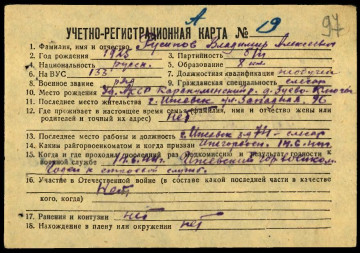 А
97
УЧЕТНО-РЕГИСТРАЦИОННАЯ КАРТА № 19
1. Фамилия, имя и отчество Владимир Алексеевич
2. Год рождения 1925 3. Партийность б/п
4. Национальность русск. 5. Образование 8 кл
6. На ВУС 133 7. Должностная квалификация необучен
8. Военное звание ряд 9. Гражданская специальность слесарь
10. Место рождения
11. Последнее место жительства г. Ижевск ул. Западная,
12. Где проживает в настоящее время семья (фамилия, имя и отчество жены или
родителей и точный их адрес) нет
13. Последнее место работы и должность г. Ижевск з-д 71 - слесарь
14. Каким райгорвоенкоматом и когда призван
15. Когда и где проходил последний раз медкомиссию и результат годности к
военной службе Ижевский
годен к строевой службе.
16. Участие в Отечественной войне (в составе какой последней части в качестве
кого, когда) нет.
17. Ранения и контузии нет
18. Нахождение в плену или окружении нет